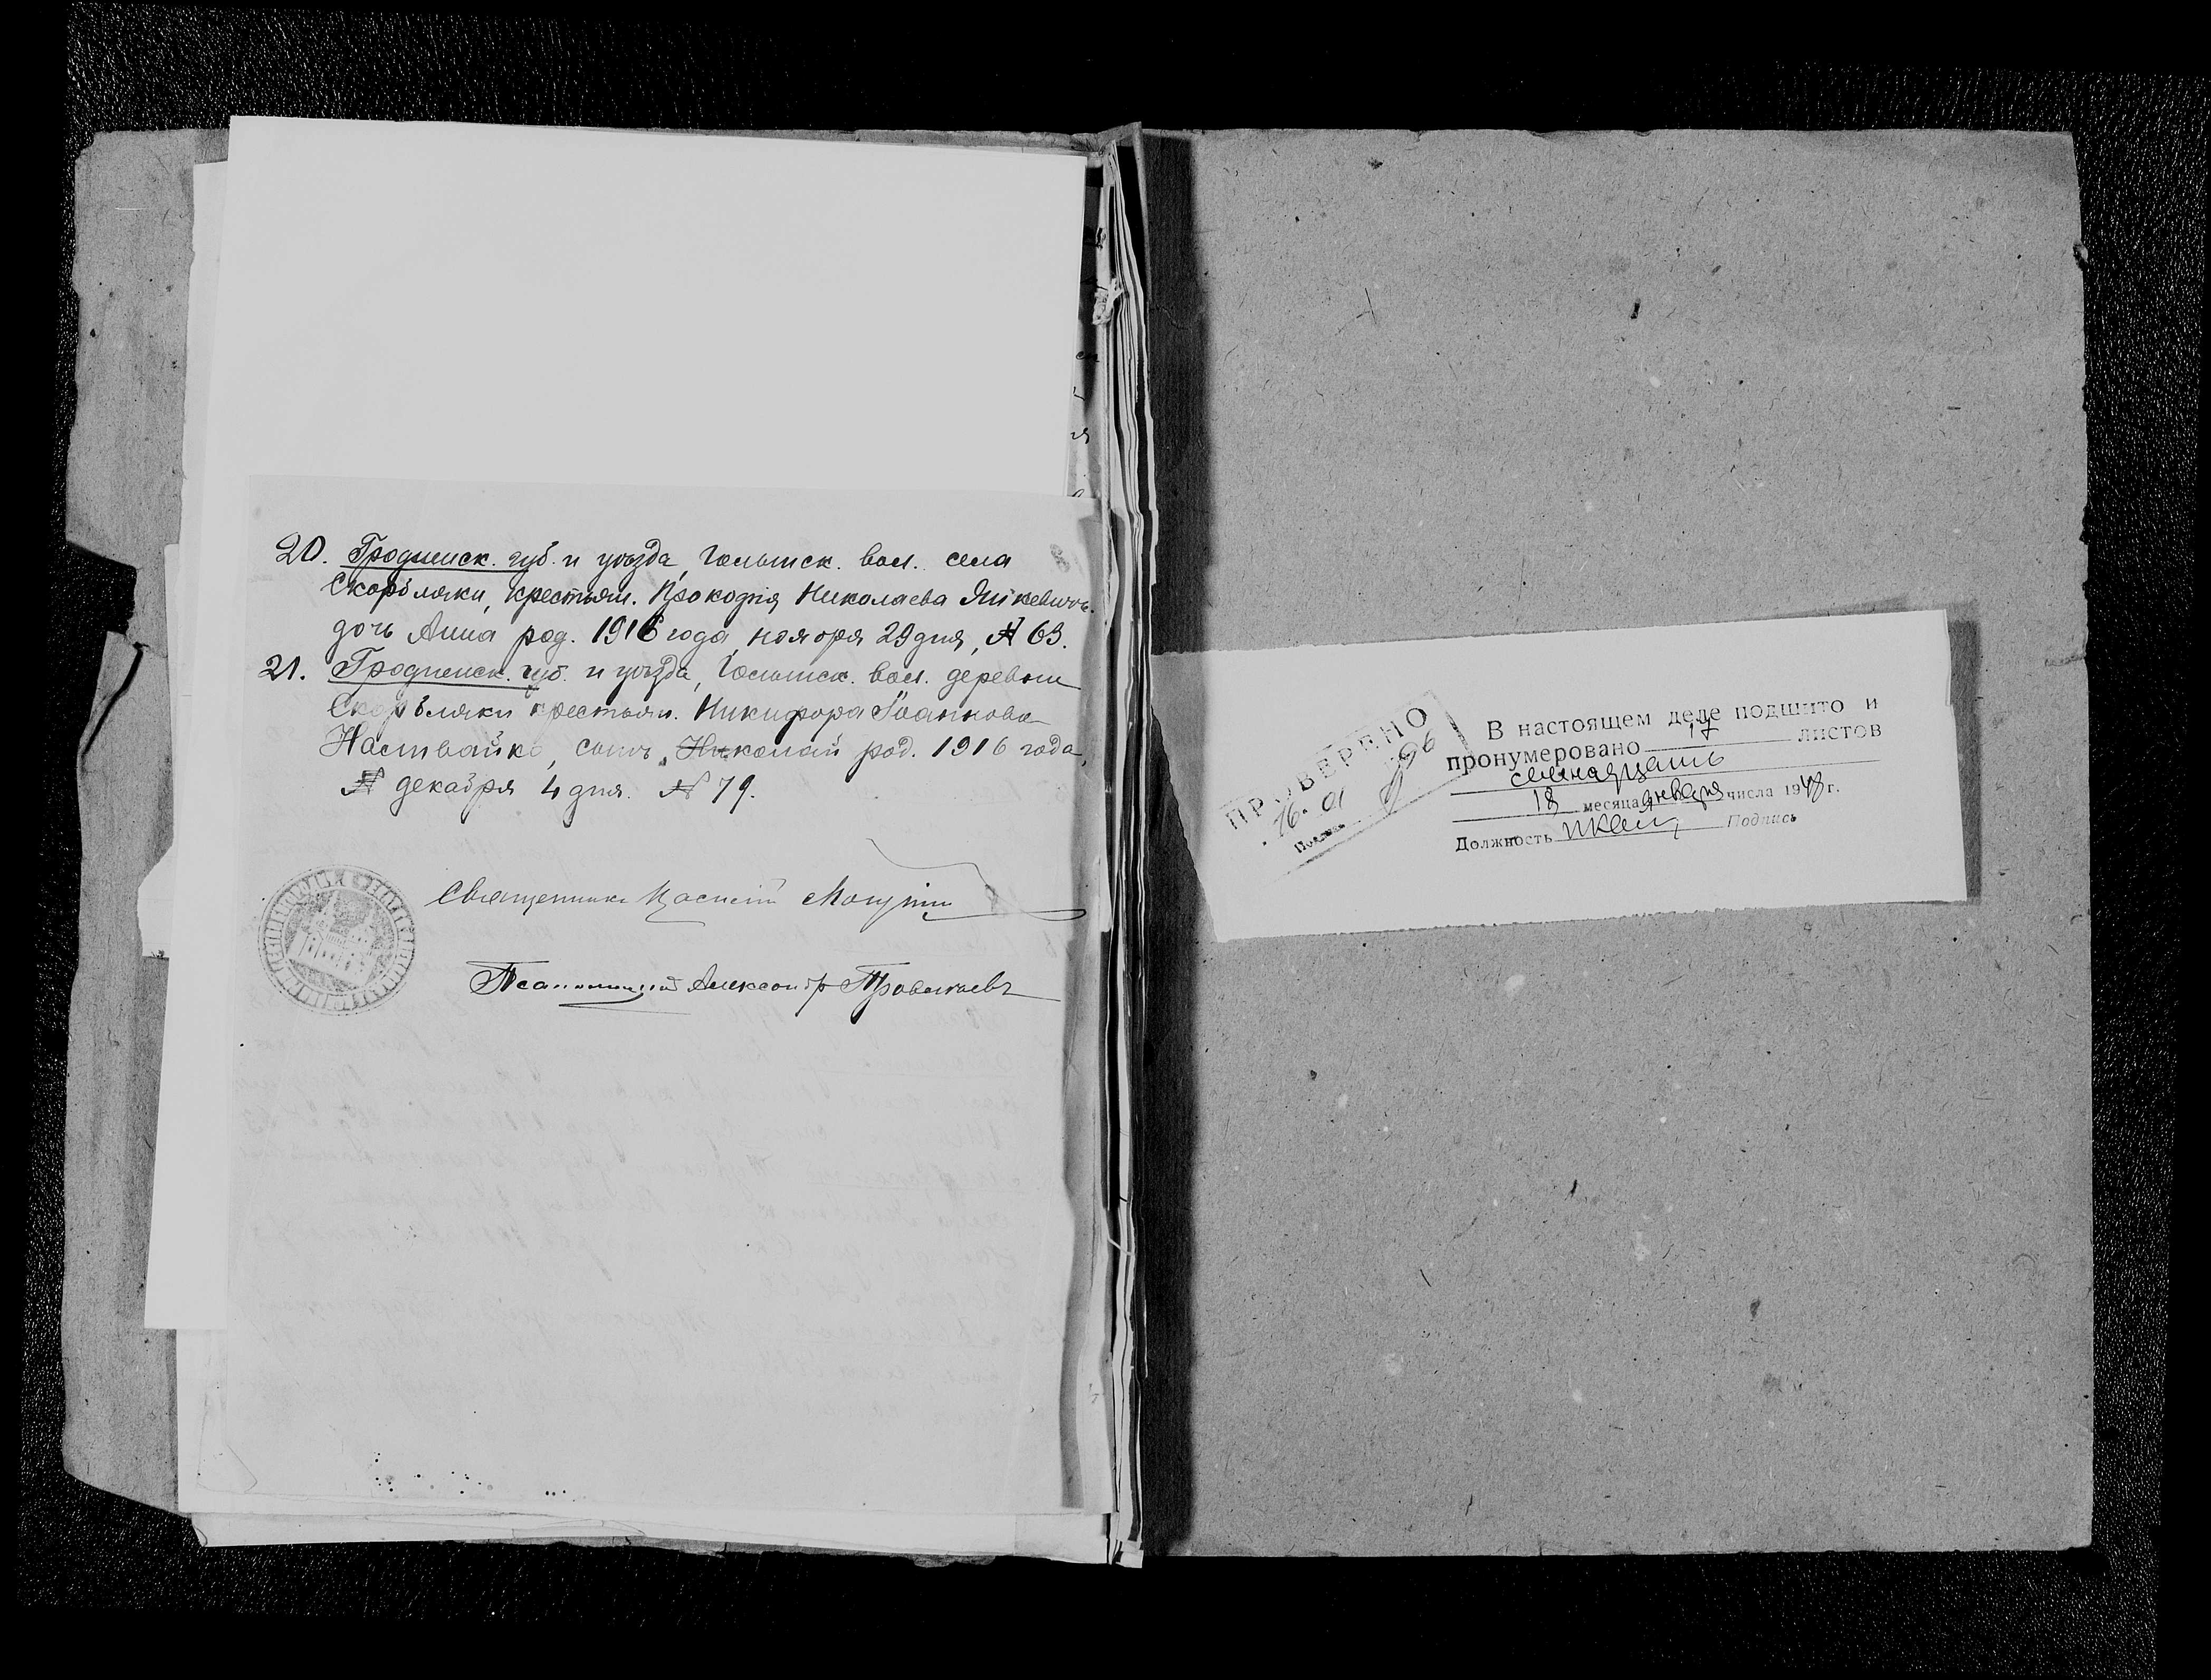 20. Гродненск. губ. и уѣзда, Гольнск. вол. села
Скорбляки, крестьян. Прокофiя Николаева Янкевичъ
дочь Анна род. 1916 года, ноября 29 дня, № 63.
21. Гродненск. губ. и уѣзда, вол. деревни
Скорбляки крестьян. Никифора Іоаннова
Наставйко, сынъ Николай род. 1916 года,
декабря 4 дня. № 79.
Священникъ
Псаломщикъ Александръ
ПРОВЕРЕНО
16. 01 96
В настоящем деле подшито и
пронумеровано 17 листов
семнадцать
18 месяца января числа 1948 г.
Должность Подпись